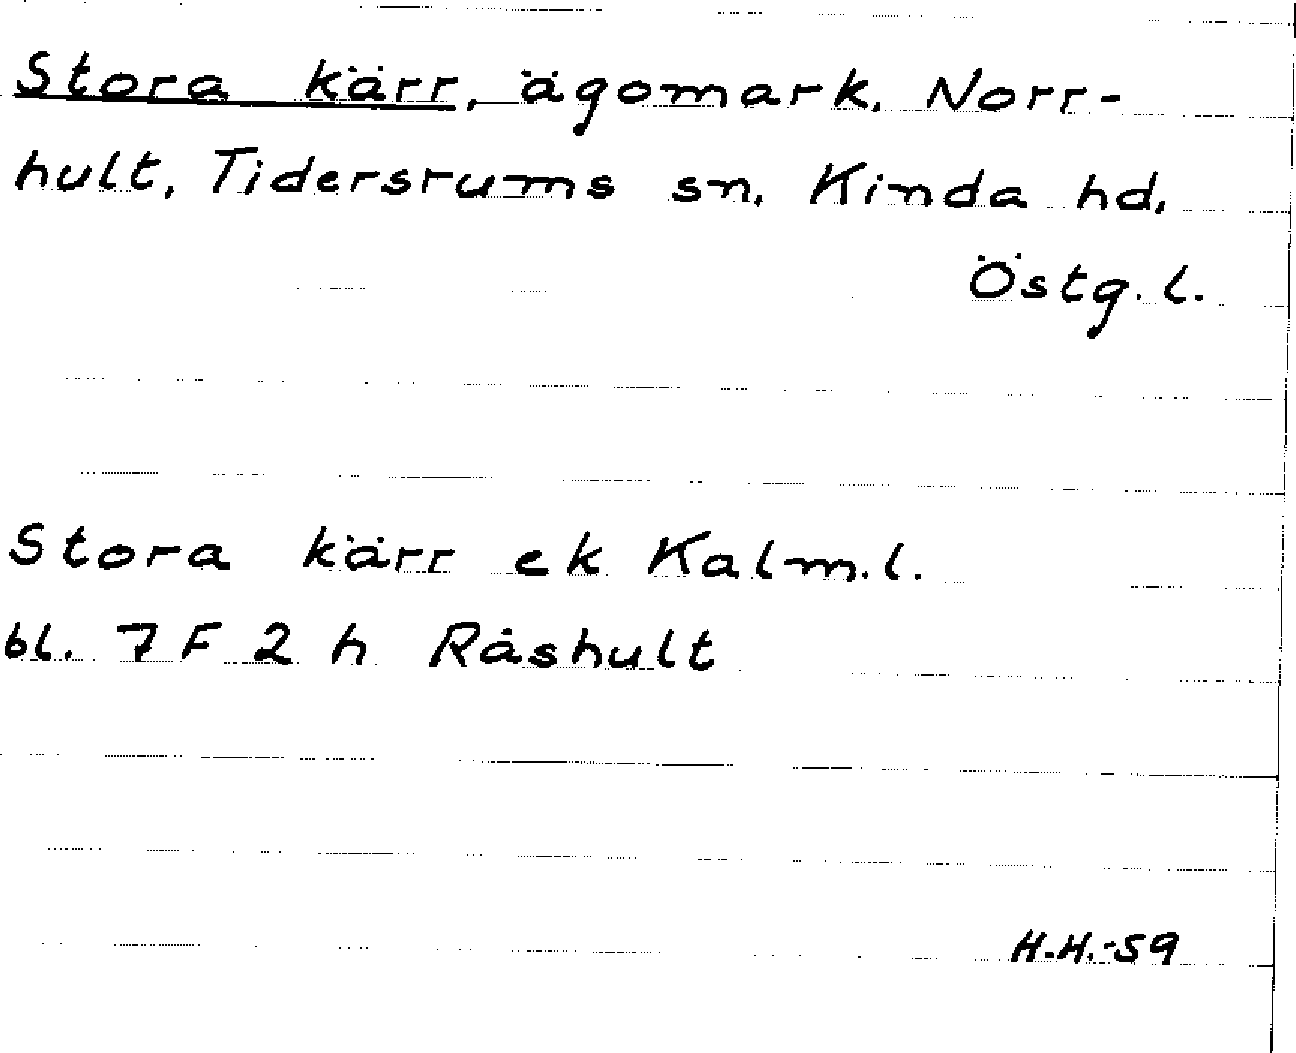 Stora kärr, ägomark, Norr-
hult, Tidersrums sn, Kinda hd,
Östg. l.
Stora kärr ek Kalm. l.
bl. 7 F 2 h Råshult
H.H.-59